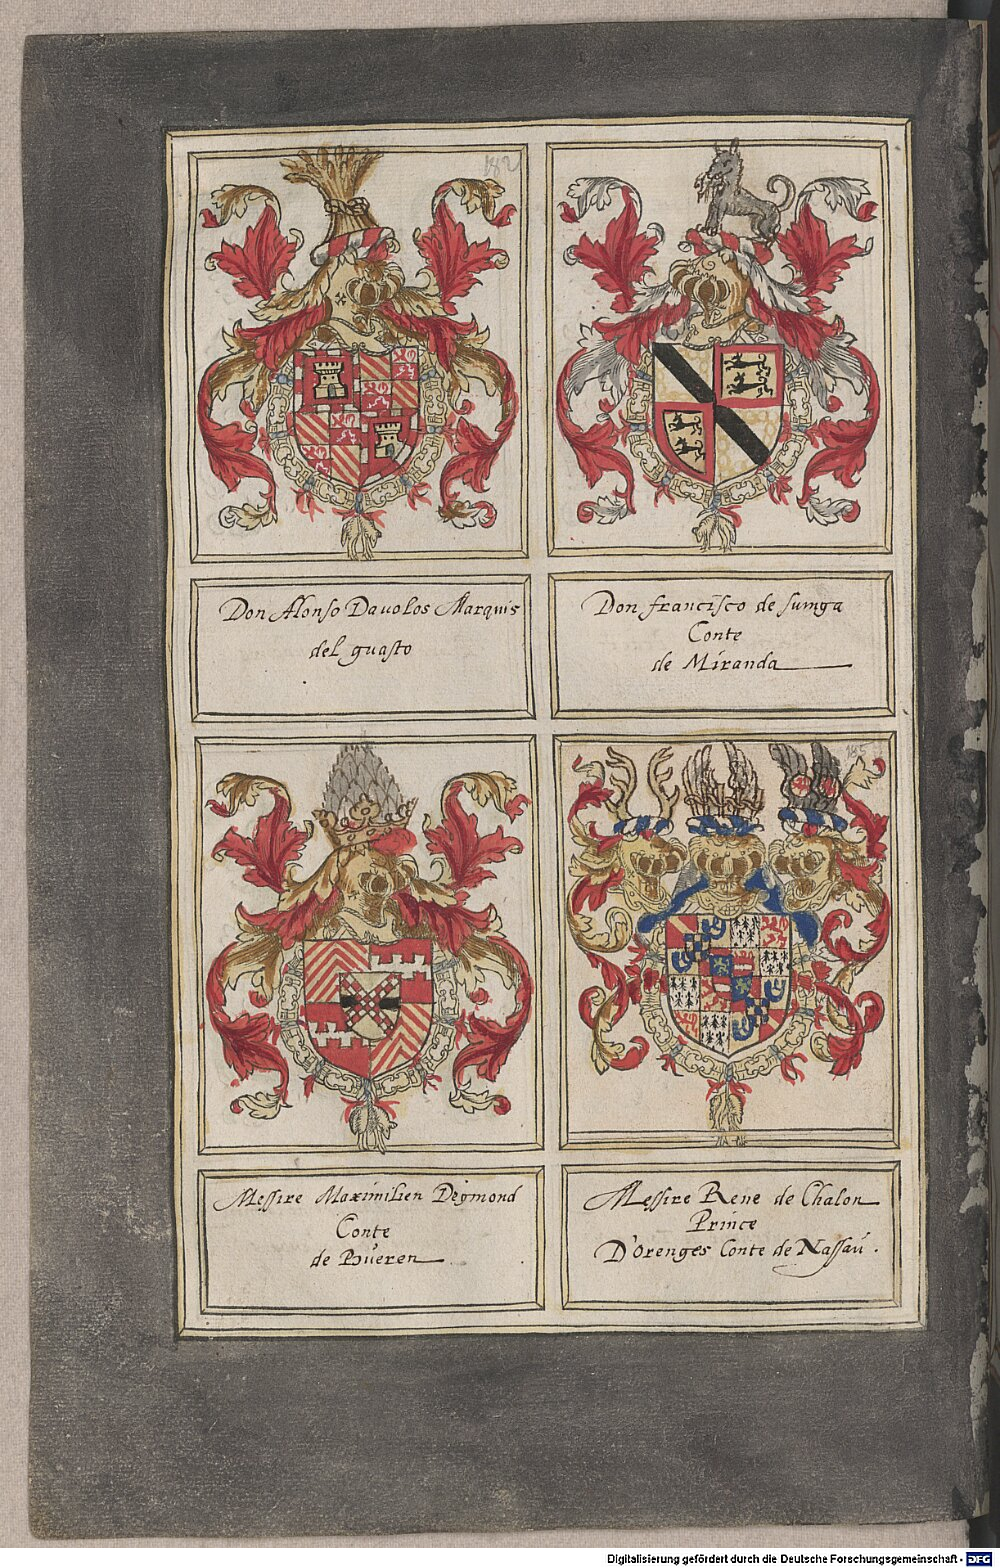 182
Don Alonso Davolos Marquis
del guasto
Don francisco de suniga
Conte
de Miranda
185
Messire Maximilien Degmond
Conte
de Büeren
Messire Rene de Chalon
Prince
D'Orenges Conte de Nassaü.
Digitalisierung gefördert durch die Deutsche Forschungsgemeinschaft - DFG